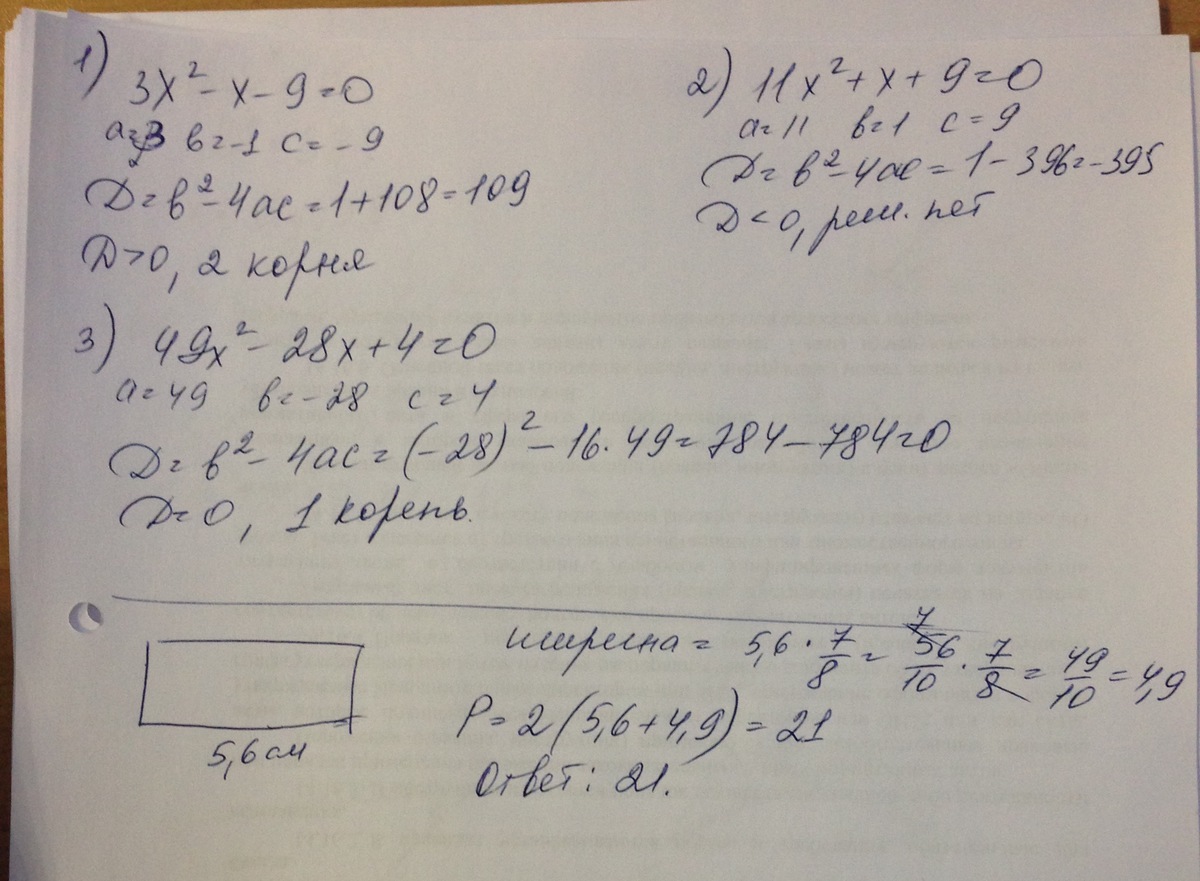 1) 3x² - x - 9 = 0
a = 3 в = -1 с = -9
D = в² - 4ас = 1 + 108 = 109
D > 0, 2 корня
2) 11x² + x + 9 = 0
a = 11 в = 1 с = 9
D = в² - 4ас = 1 - 396 = -395
D < 0, реш. нет
3) 49x² - 28x + 4 = 0
a = 49 в = -28 с = 4
D = в² - 4ас = (-28)² - 16 · 49 = 784 - 784 = 0
D = 0, 1 корень.
5,6 см
ширина = 5,6 · 7/8 = 56/10 · 7/8 = 49/10 = 4,9
7
P = 2(5,6 + 4,9) = 21
Ответ: 21.